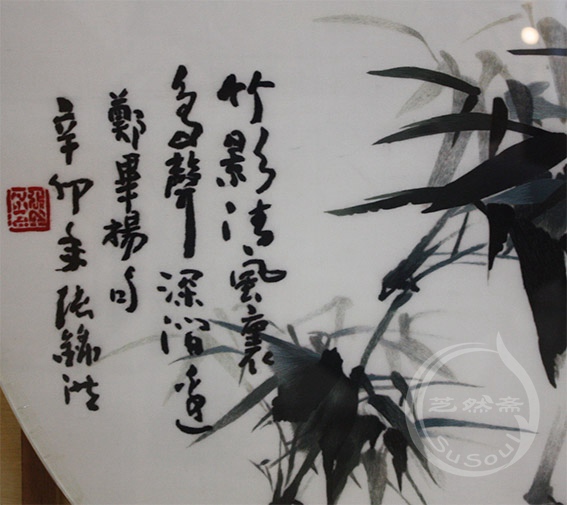 竹影清風裏
鳥聲深澗邊
鄭畢揚句
辛卯年張錦
艺然斋
SuSoul